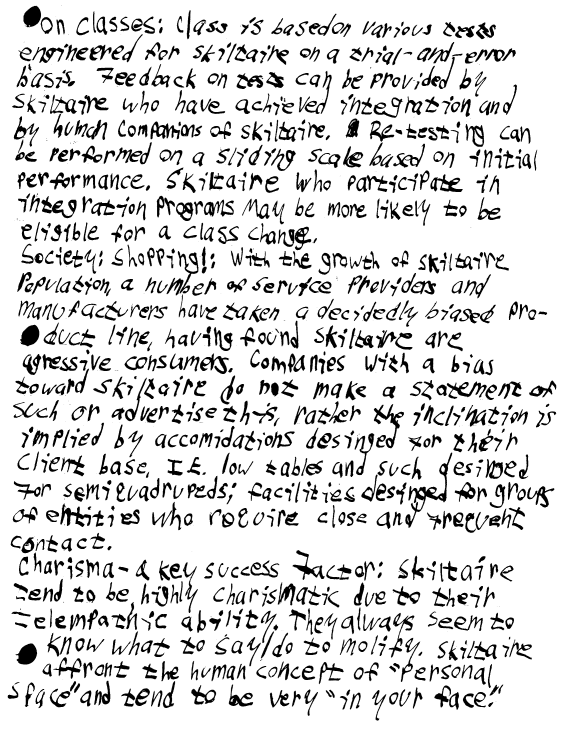 On classes: Class is based on various tests
engineered for skiltaire on a trial-and-error
basis. Feedback on tests can be provided by
skiltaire who have achieved integration and
by human companions of skiltaire. Re-testing can
be performed on a sliding scale based on initial
performance. Skiltaire who participate in
integration programs may be more likely to be
eligible for a class change.
Society: Shopping!: With the growth of skiltaire
population, a number of service providers and
manufacturers have taken a decidedly biased pro-
duct line, having found skiltaire are
agressive consumers. Companies with a bias
toward skiltaire do not make a statement of
such or advertise this, rather the inclination is
implied by accomidations desinged for their
client base, I.E. low tables and such desinged
for semiquadrupeds; facilities desinged for groups
of entities who require close and frequent
contact.
Charisma- a key success factor: Skiltaire
tend to be highly charismatic due to their
telempathic ability. They always seem to
know what to say/do to molify. Skiltaire
affront the human concept of "personal
space" and tend to be very "in your face."